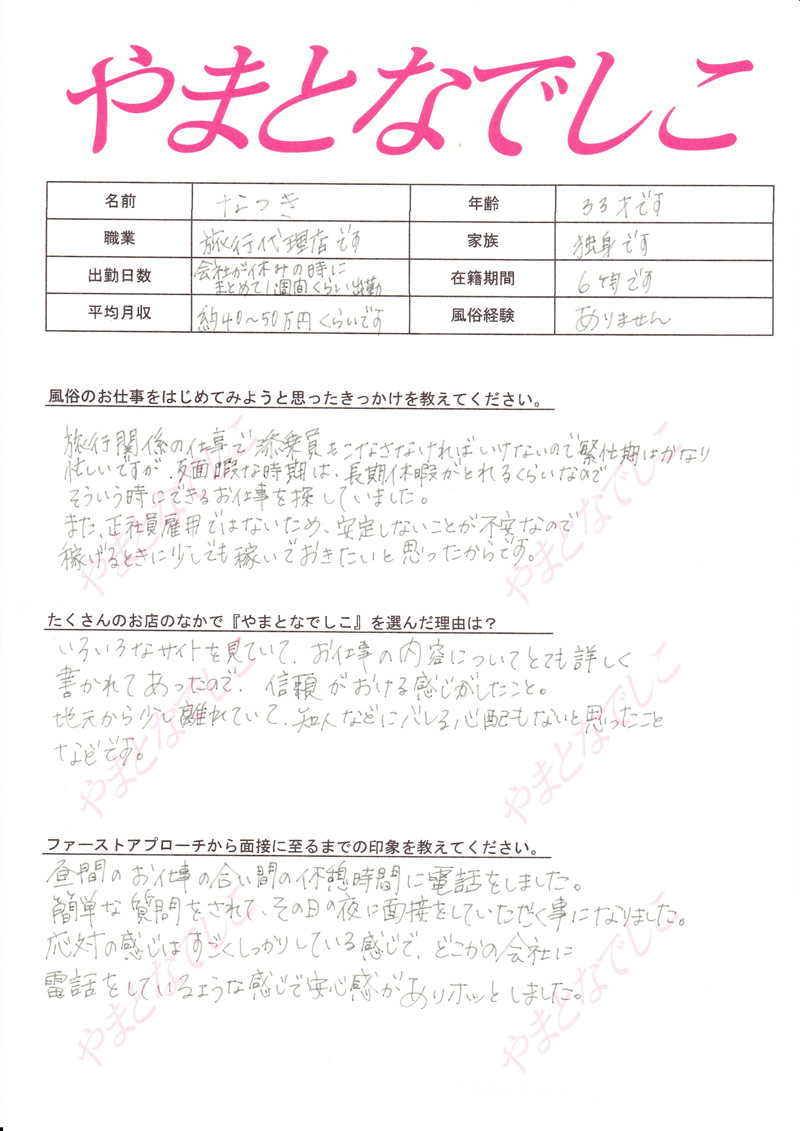 やまとなでしこ
名前 なつき 年齢 33才です
職業 旅行代理店です 家族 独身です
出勤日数 会社が休みの時に
まとめて1週間くらい出勤 在籍期間 6ヶ月です
平均月収 約40〜50万円くらいです 風俗経験 ありません
風俗のお仕事をはじめてみようと思ったきっかけを教えてください。
旅行関係の仕事で添乗員もこなさなければいけないので繁忙期はかなり
忙しいですが、反面暇な時期は、長期休暇がとれるくらいなので
そういう時にできるお仕事を探していました。
また、正社員雇用ではないため、安定しないことが不安なので
稼げるときに少しでも稼いでおきたいと思ったからです。
たくさんのお店のなかで『やまとなでしこ』を選んだ理由は？
いろいろなサイトを見ていて、お仕事の内容についてとても詳しく
書かれてあったので、信頼がおける感じがしたこと。
地元から少し離れていて、知人などにバレる心配もないと思ったこと
などです。
ファーストアプローチから面接に至るまでの印象を教えてください。
昼間のお仕事の合い間の休憩時間に電話をしました。
簡単な質問をされて、その日の夜に面接をしていただく事になりました。
応対の感じはすごくしっかりしている感じで、どこかの会社に
電話をしているような感じで安心感がありホッとしました。
やまとなでしこ
やまとなでしこ
やまとなでしこ
やまとなでしこ
やまとなでしこ
やまとなでしこ